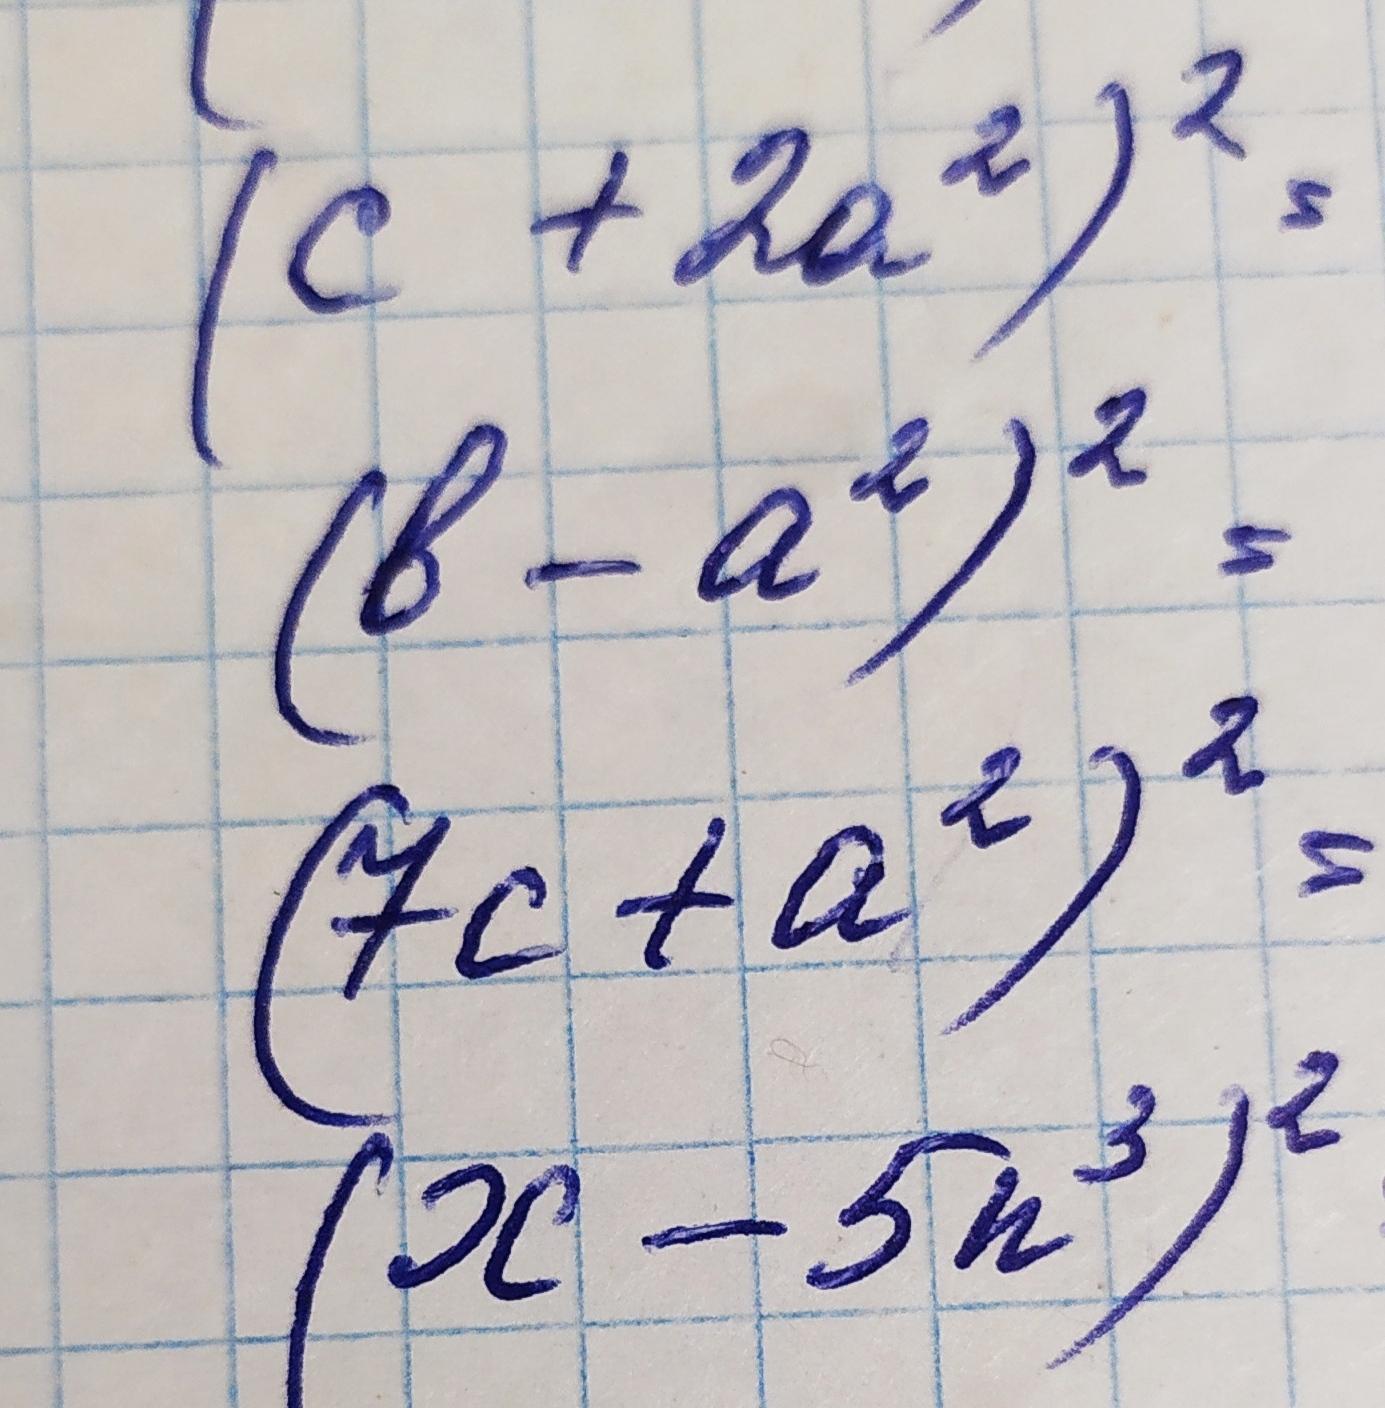 (c + 2a²)² =
(b - a²)² =
(7c + a²)² =
(x - 5n³)²